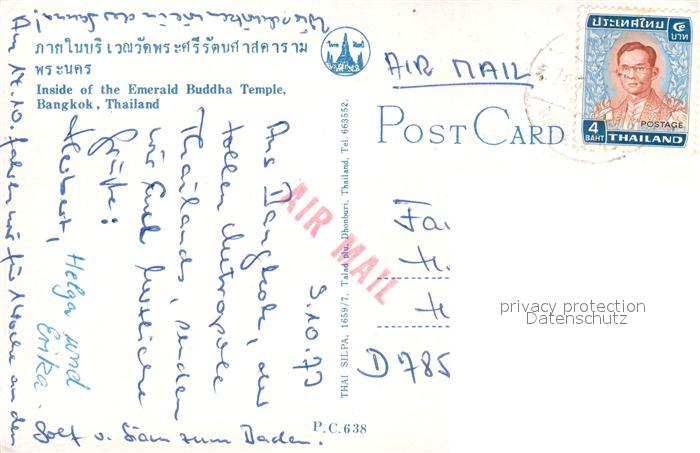 ภายในบริเวณวัดพระศรีรัตนศาสดาราม
พระนคร
Inside of the Emerald Buddha Temple,
Bangkok, Thailand
AIR MAIL
POST CARD
ประเทศไทย ๔
บาท
POSTAGE
4
BAHT THAILAND
AIR MAIL
THAI SILPA, 1659/7, Talad plu, Dhonburi, Thailand, Tel. 663552.
P.C.638
9.10.73
Aus Bangkok, der
tollen Metropole
Thailands, senden
wir Euch herzliche
Grüße:
Herbert,
Helga und
Erika.
Am 17.10. fahren wir für 1 Woche an den
Golf v. Siam zum Baden.
D 785
privacy protection
Datenschutz